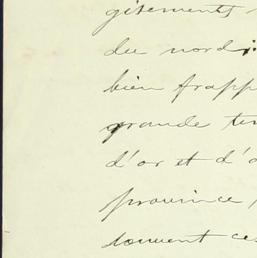 gisements
du nord;
bien frapp
grande ten
d'or et d'a
province,
souvent ces